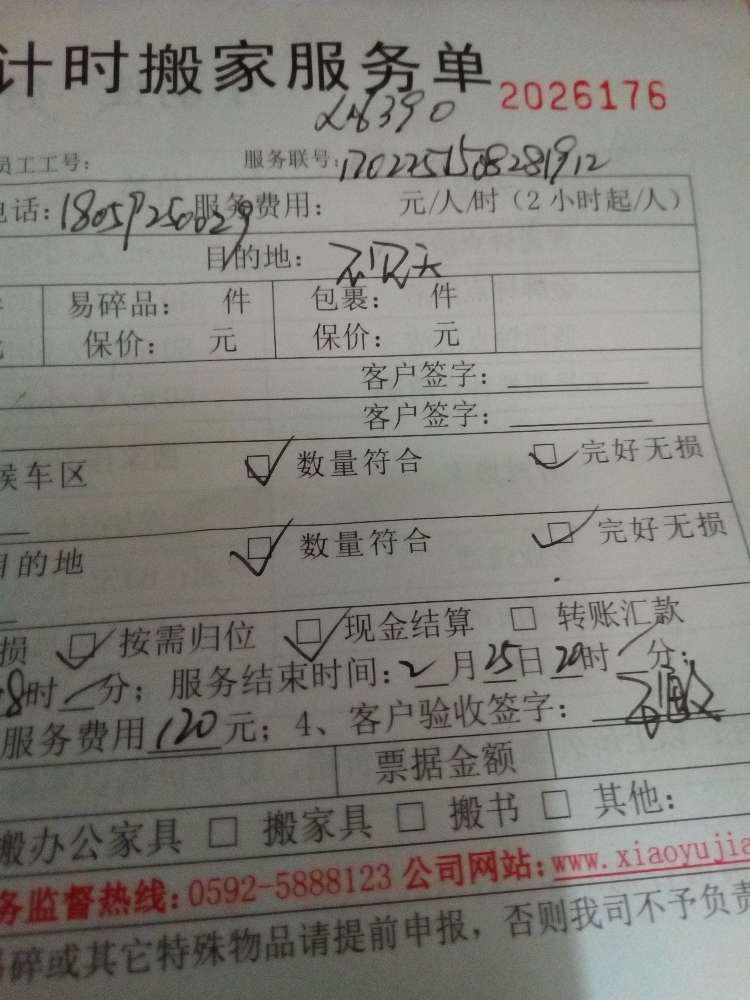 计时搬家服务单 2026176
员工工号： 服务联号：1702251508281912
电话：18059250029 服务费用： 元/人/时（2小时起/人）
目的地：
易碎品： 件 包裹： 件
保价： 元 保价： 元
客户签字：
客户签字：
候车区 □ 数量符合 □ 完好无损
目的地 □ 数量符合 □ 完好无损
损 □ 按需归位 □ 现金结算 □ 转账汇款
8时 分；服务结束时间：2月25日20时 分；
服务费用120元；4、客户验收签字：
票据金额
搬办公家具 □ 搬家具 □ 搬书 □ 其他：
务监督热线：0592-5888123 公司网站：www.xiaoyujia
易碎或其它特殊物品请提前申报，否则我司不予负责